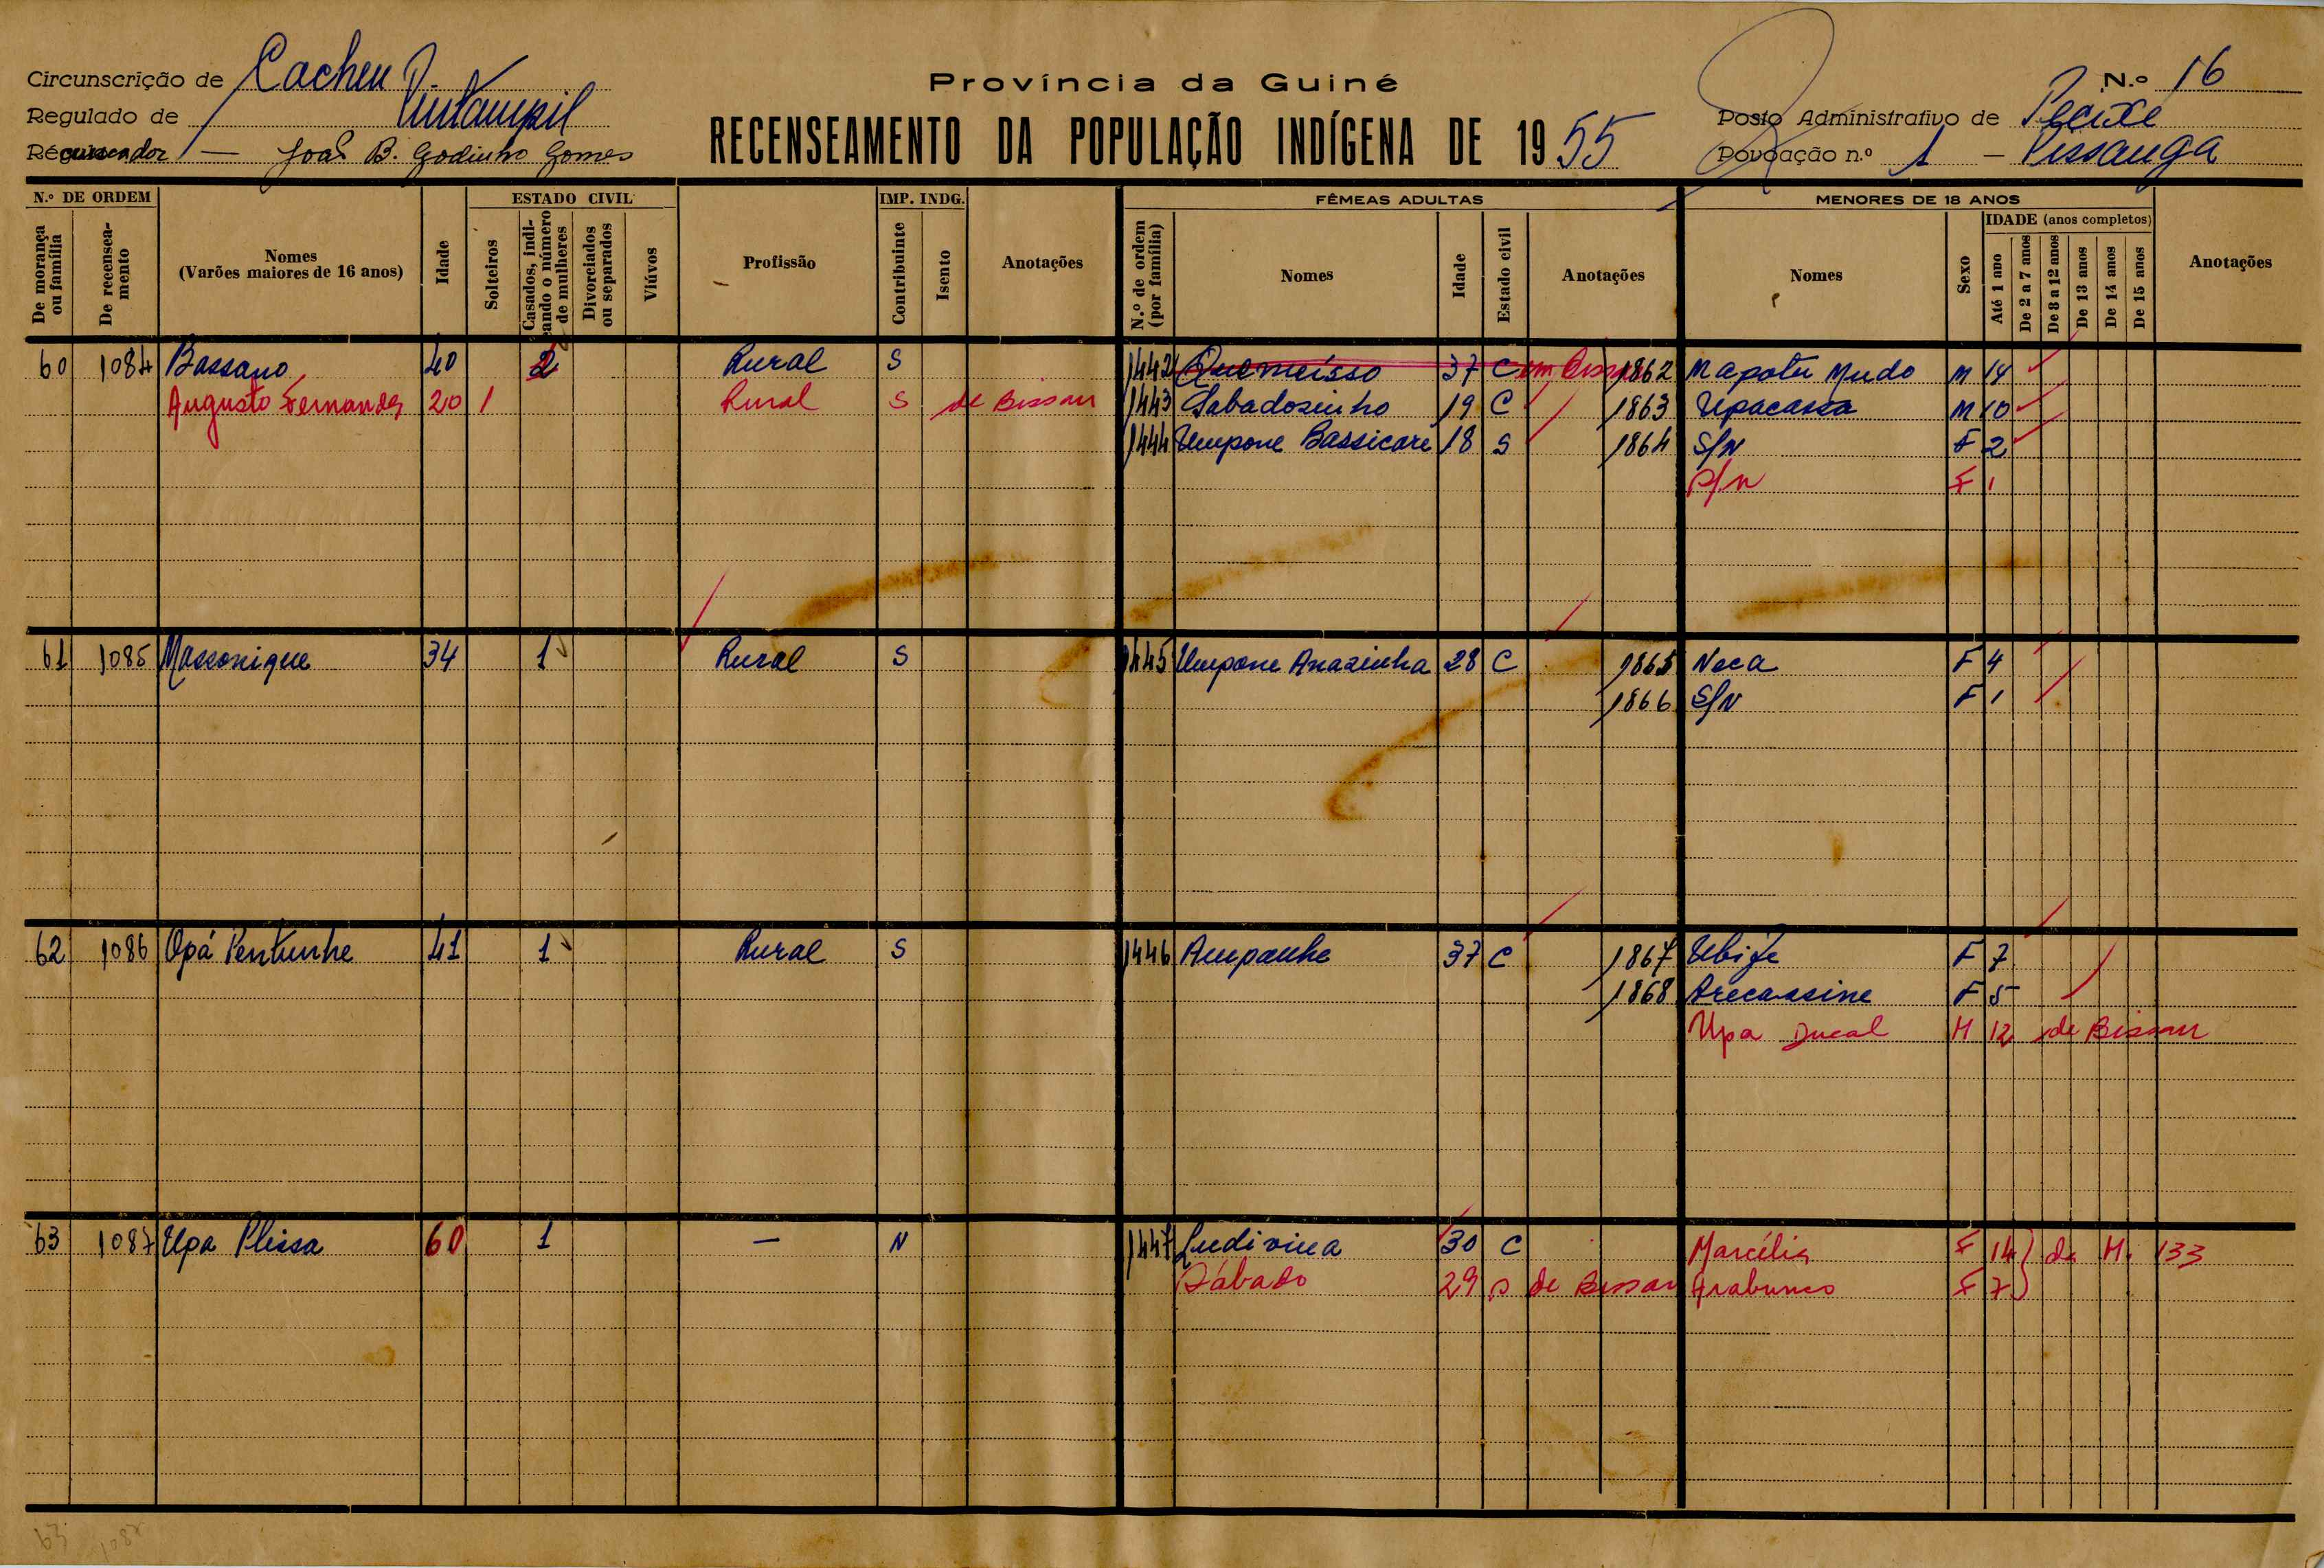 Província da Guiné
RECENSEAMENTO DA POPULAÇÃO INDÍGENA DE 1955
Circunscrição de Cacheu
Regulado de
Recenseador — João B. Godinho Gomes
N.º 16
Posto Administrativo de Pecixe
Povoação n.º 1 — Pissanga
N.º DE ORDEM
De morança ou família
De recenseamento
Nomes (Varões maiores de 16 anos)
Idade
ESTADO CIVIL
Solteiros
Casados, indicando o número de mulheres
Divorciados ou separados
Viúvos
Profissão
IMP. INDG.
Contribuinte
Isento
Anotações
FÊMEAS ADULTAS
N.º de ordem (por família)
Nomes
Idade
Estado civil
Anotações
MENORES DE 18 ANOS
Nomes
Sexo
IDADE (anos completos)
Até 1 ano
De 2 a 7 anos
De 8 a 12 anos
De 13 anos
De 14 anos
De 15 anos
Anotações
60 1084 Bassano 40 2 Rural S 1442 Quemeisso 37 C em Bissau 1862 Mapotu Mudo M 14
Augusto Fernandes 20 1 Rural S de Bissau 1443 Sabadosinho 19 C 1863 Upacassa M 10
1444 Umpone Bassicare 18 S 1864 S/N F 2
S/N F 1
61 1085 Massonique 34 1 Rural S 1445 Umpone Anazinha 28 C 1865 Neca F 4
1866 S/N F 1
62 1086 Opá Pentunhe 41 1 Rural S 1446 Ampanhe 37 C 1867 Ubife F 7
1868 Arecassine F 5
Upa Jucal M 12 de Bissau
63 1087 Upa Plissa 60 1 — N 1447 Ludivina 30 C Marcélia F 14 da M. 133
Sábado 29 S de Bissau Arabunco F 7
63 1087